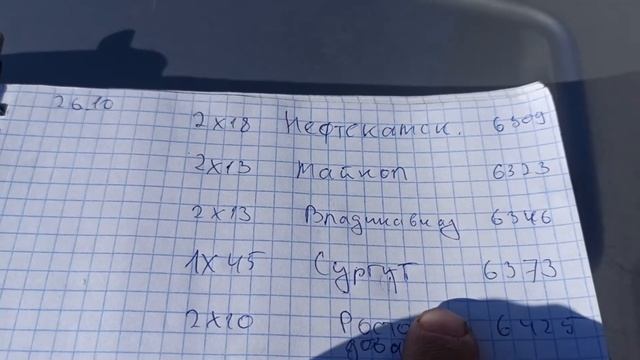 26.10
2х18 Нефтекамск. 6309
2х13 Майкоп 6323
2х13 Владикавказ 6346
1х45 Сургут 6373
2х10 Росто 6425